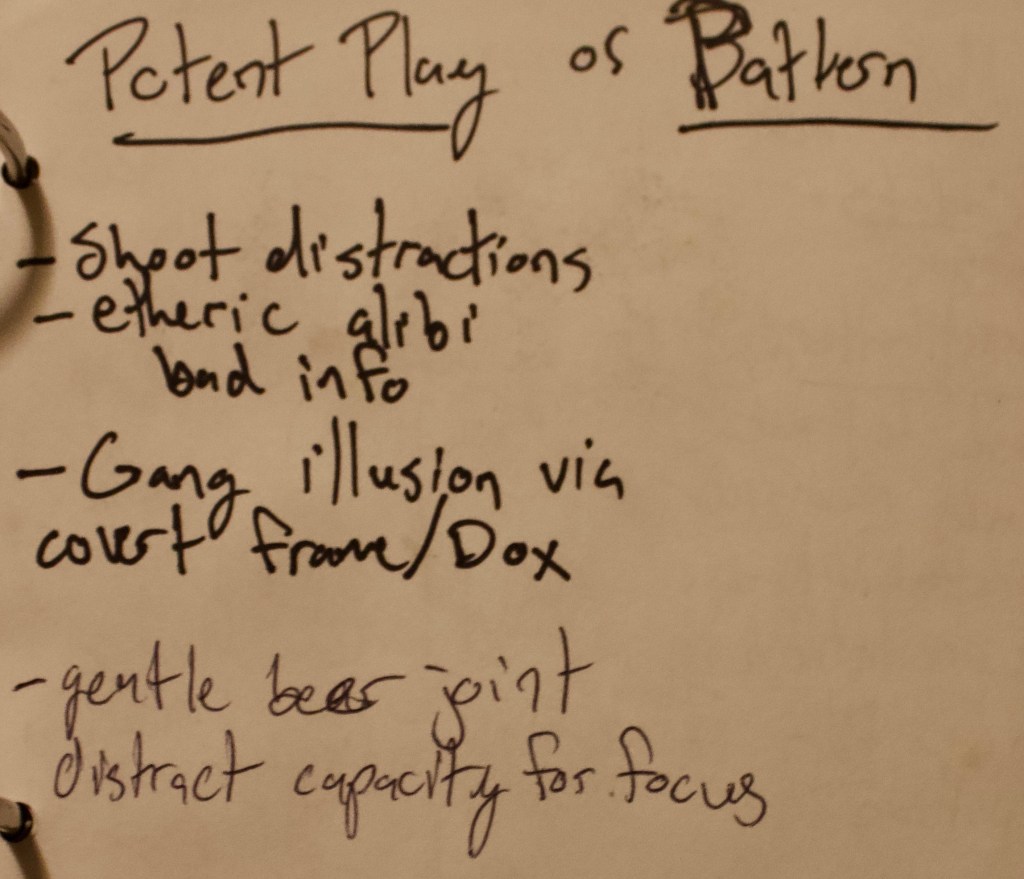 Potent Play of Battern
- Shoot distractions
- etheric alibi
bad info
- Gang illusion via
covert frame/Dox
- gentle beer joint
distract capacity for focus